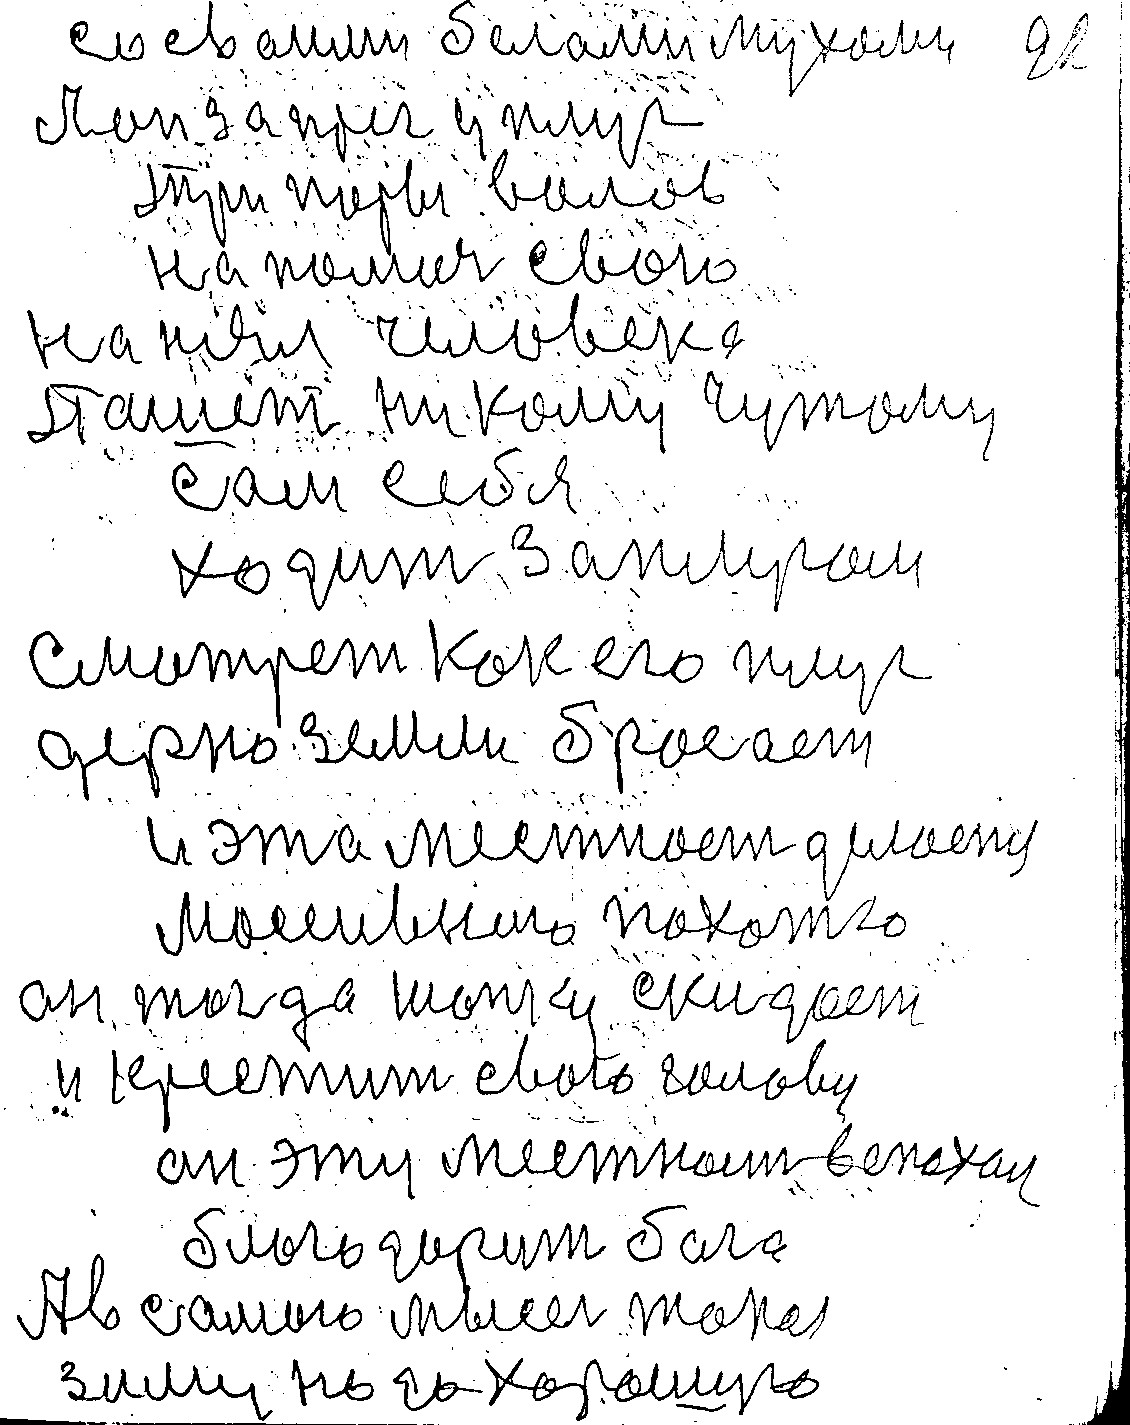 со своими белами мухами 92
Поп запрег у плуг
три пары валов
на помич свою
нанял человека
Пашет никому чужому
сам себя
ходит заплугом
Смотрет как его плуг
дерно земли бросает
и эта местност делает
Массивную пахотго
он тогда шапку скидает
и крестит свою голову
он эту местност вспахал
благодарит бога
Ав самого мысел такая
зиму надо хорошую